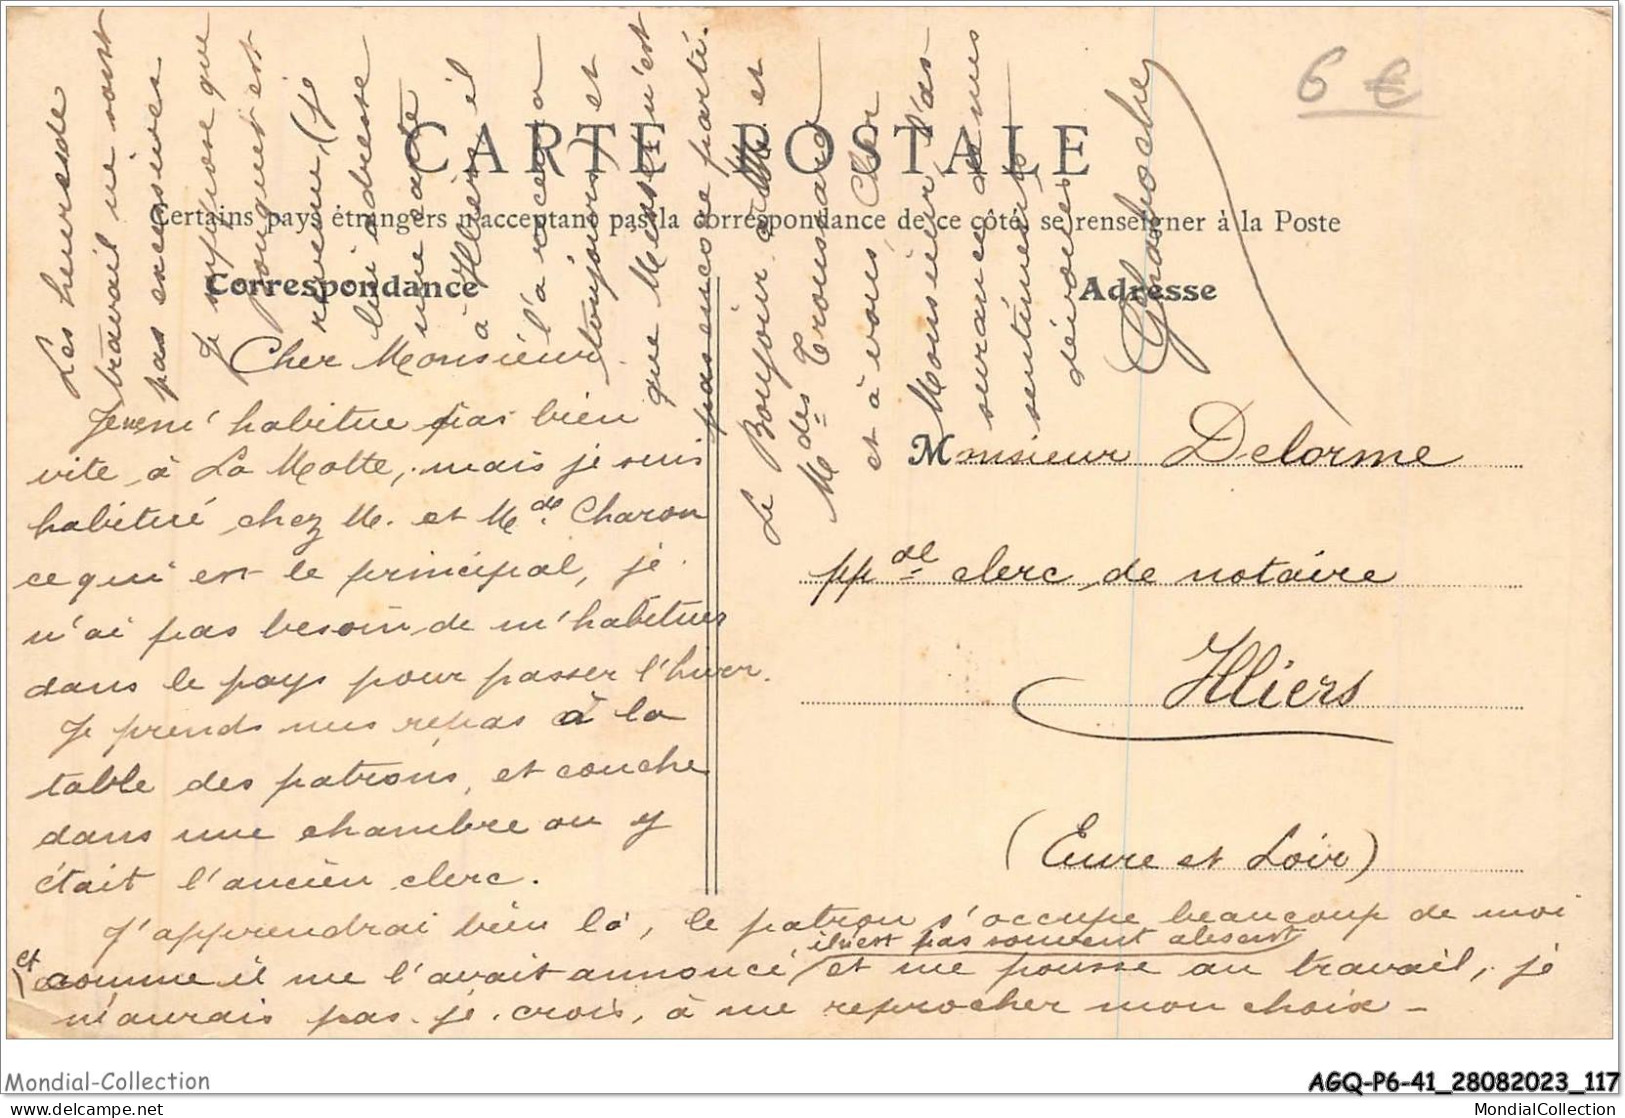 6 €
CARTE POSTALE
Certains pays étrangers n'acceptant pas la correspondance de ce côté, se renseigner à la Poste
Correspondance
Adresse
Cher Monsieur,
Je ne m'habitue pas bien
vite à La Motte, mais je suis
habitué chez M. et Mde. Charon
ce qui est le principal, je
n'ai pas besoin de m'habituer
dans le pays pour passer l'hiver.
Je prends mes repas à la
table des patrons, et couche
dans une chambre où y
était l'ancien clerc.
J'apprendrai bien là, le patron s'occupe beaucoup de moi
il n'est pas souvent absent
et comme il me l'avait annoncé, et me pousse au travail, je
n'aurais pas, je crois, à me reprocher mon choix -
Les heures de
travail ne sont
pas excessives.
Je suppose que
Pouguet est
revenu, (je
lui adresse
une carte
à Illiers il
l'a recevra
toujours) et
que Messu n'est
pas encore parti.
Le Bonjour à M. et
Mdes Troussard
et à vous Cher
Monsieur, l'as
surance de mes
sentiments
dévoués
GhaBoche
Monsieur Delorme
ppal clerc de notaire
Illiers
(Eure et Loir)
Mondial-Collection
AGQ-P6-41_28082023_117
www.delcampe.net
MondialCollection